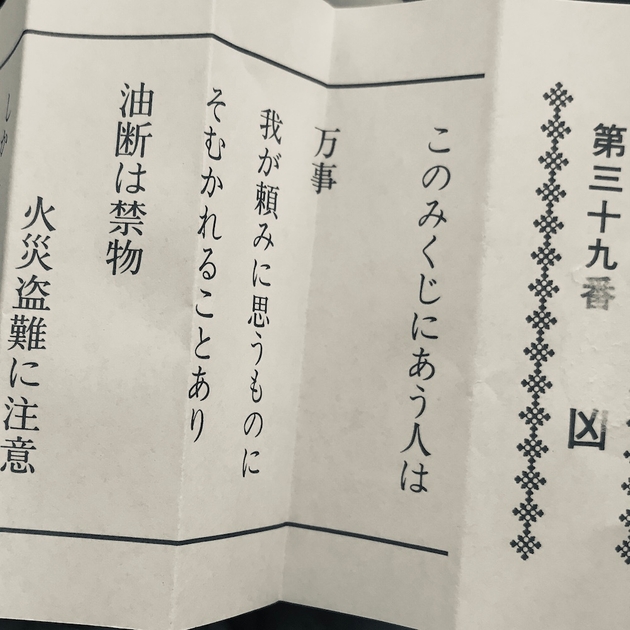 第三十九番 凶
このみくじにあう人は
万事
我が頼みに思うものに
そむかれることあり
油断は禁物
火災盗難に注意
しか